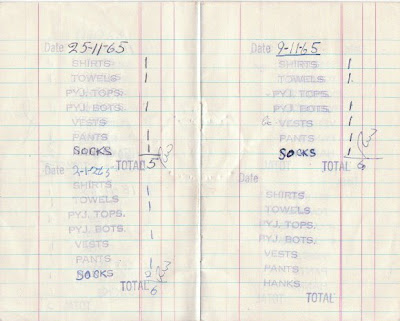 Date 25-11-65
SHIRTS 1
TOWELS 1
PYJ. TOPS.
PYJ. BOTS. 1
VESTS
PANTS 1
SOCKS 1
TOTAL 5
Date
SHIRTS 1
TOWELS 1
PYJ. TOPS.
PYJ. BOTS. 1
VESTS
PANTS 1
SOCKS
TOTAL 6
Date 9-11-65
SHIRTS 1
TOWELS 1
PYJ. TOPS.
PYJ. BOTS. 1
VESTS 1
PANTS 1
SOCKS 1
TOTAL 6
Date
SHIRTS
TOWELS
PYJ. TOPS.
PYJ. BOTS.
VESTS
PANTS
HANKS
TOTAL